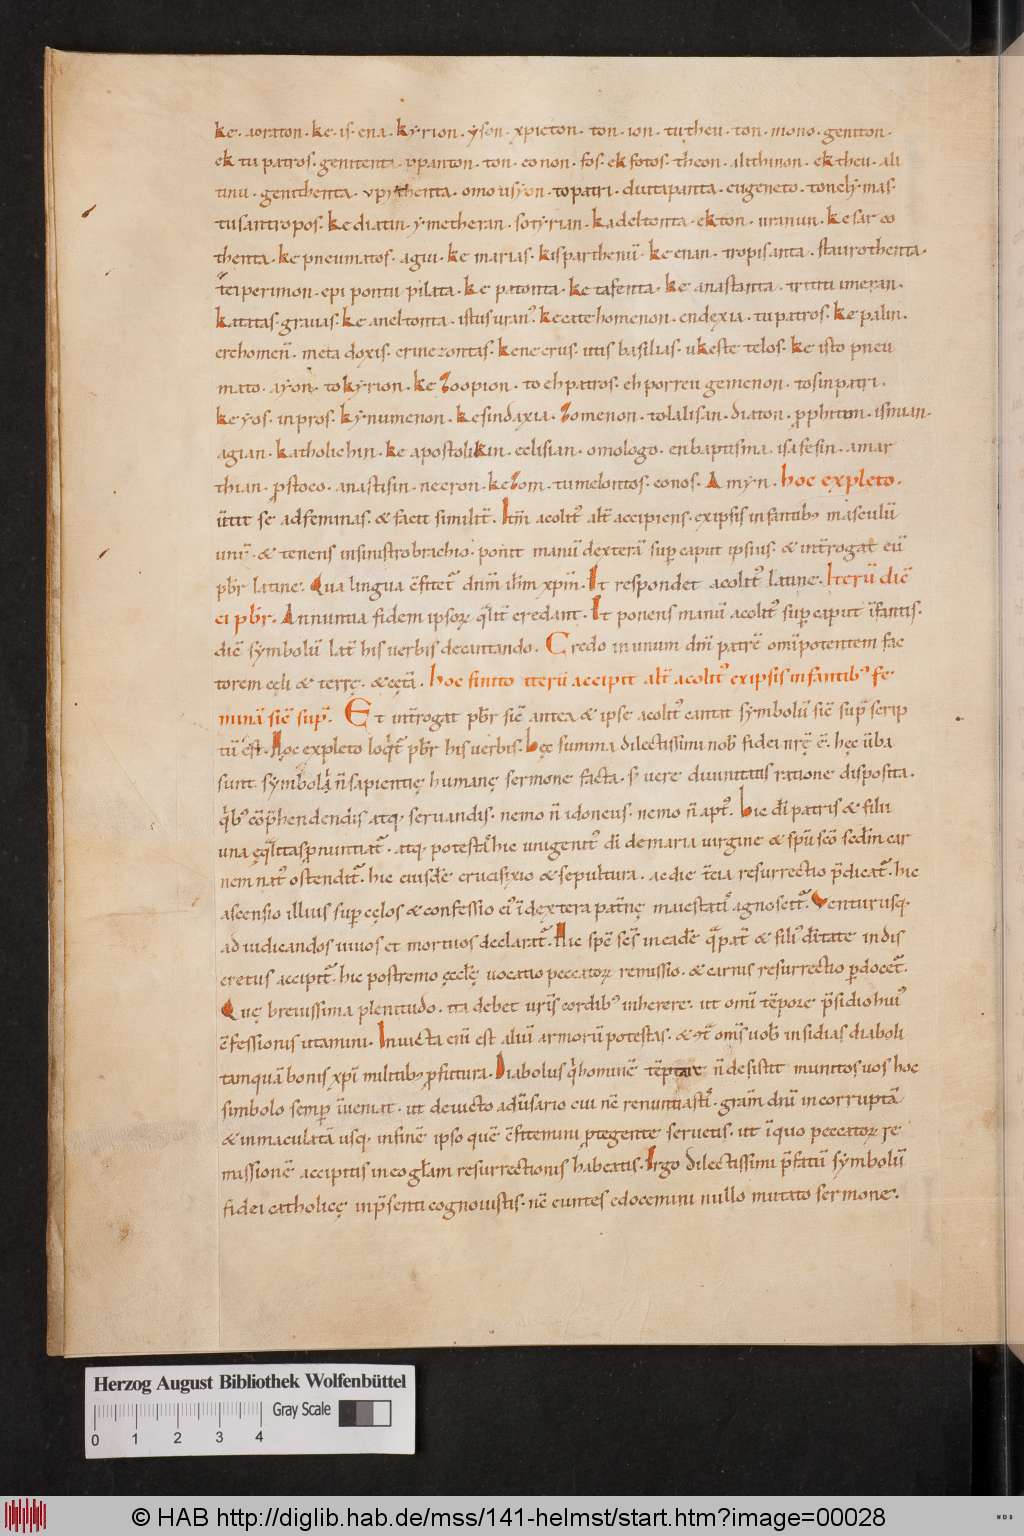 ke. aoraton. ke. is. ena. kyrion. yson. xpicton. ton. ion. tutheu. ton. mono. geniton.
ek tu patros. genitenta. ppanton. ton. eonon. fos. ek fotos. theon. alithinon. ek theu. ali
tinu. genithenta. omousyon. topatri. diutapanta. eugeneto. tonely mas.
tus antropos. ke diatin. ymetheran. sotyrian. kadeltonta. ekton. uranun. ke sar co
thenta. ke pneumatos. agiu. ke marias. kisparthenū. ke enan. tropisanta. staurothenta.
teiperimon. epi pontiu pilata. ke patonta. ke tafenta. ke anastanta. trititi imeran.
katatas. grauas. ke aneltonta. istus uran᷒. ke catehomenon. endexia. tu patros. ke palin.
erchomenū. meta doxis. crinezontas. kenecrus. utis basilias. ukeste telos. ke isto pneu
mato. ayon. tokyrion. ke zoopion. to ek patros. ek porreugemenon. tosinpatri.
ke yos. inpros. kynumenon. kesindaxia. zomenon. tolalisan. diaton. pphiton. ismian.
agian. katholichin. ke apostolikin. eclisian. omologo. enbaptisma. isafesin. amar
thian. pstoco. anastisin. neeron. ke zom. tumelontos. eonos. Amyn. hoc expleto.
ūtit se ad feminas. & facit similit̄. Itm̄ acolit᷒ alt̄ accipiens. ex ipsis infantib᷒ masculū
unū. & tenens insinistro brachio. ponit manū dexterā sup caput ipsius. & int̄rogat eū
pbr̄ latine. Qua lingua c̄fitet᷒ dnm̄ ihm̄ xpm̄. It respondet acolit᷒ latine. Iterū dic̄
ei pbr̄. Annuntia fidem ipsoꝝ qlit̄ credant. It ponens manū acolit᷒ sup caput īfantis.
dic̄ symbolū lat̄ his verbis decantando. Credo in unum dm̄ patrē omīpotentem fac
torem cęli & terrę. & cętā. hoc finito iterū accipit alt̄ acolit᷒ ex ipsis infantib᷒ fe
minā sic̄ sup̄. Et int̄rogat pbr̄ sic̄ antea & ipse acolit᷒ cantat symbolū sic̄ sup̄ scrip
tū est. hoc expleto loqt̄ pbr̄ his verbis. hęc summa dilectissimi nob̄ fidei nr̄ę ē. hęc ūba
sunt symbola. n̄ sapientię humanę sermone facta. s; vere diuinitatis ratione disposita.
qb᷒ cōp̄hendendis atq. servandis. nemo n̄ idoneus. nemo n̄ apt᷒. hic dī patris & filii
una ęqlitas p̄nuntiat᷒. atq. potestas hic unigenit᷒ dī de maria virgine & spū scō sedm̄ car
nem nat᷒ ostendit᷒. hic eiusdē crucifixio & sepultura. ac die t̄cia resurrectio p̄dicat᷒. hic
ascensio illius sup cęlos & confessio ei᷒ ī dextera pat̄nę maiestatis agnoscit᷒. Venturusq.
ad iudicandos vivos et mortuos declarat᷒. hic spc̄ scs̄ in eadē q pat̄ & fili᷒ dītate indis
cretus accipit᷒. hic postremo ęcclę vocatio peccatoꝝ remissio. & carnis resurrectio pdocet᷒.
Quę brevissima plenitudo. ita debet vr̄is cordib᷒ inherere. ut omī tēpore p̄sidio hui᷒
c̄fessionis utamini. Invicta enī est aliū armorū potestas. & ōms vob̄ insidias diaboli
tanquā bonis xpī militib᷒ pfutura. Diabolus q hominē tēptare n̄ desistit munitos vos hoc
simbolo semp īveniat. ut devicto adūsario cui nē renuntiastis. gram̄ dnī incorruptā
& inmaculatā usq. in finē ipso quē c̄fitemini ptegente servetis. ut ī quo peccatoꝝ re
missionē accipitis in eo glām resurrectionis habeatis. Irgo dilectissimi p̄fatū symbolū
fidei catholicę in p̄senti cognovistis. nē euntes edocemini nullo mutato sermone.
Herzog August Bibliothek Wolfenbüttel
Gray Scale
0 1 2 3 4
© HAB http://diglib.hab.de/mss/141-helmst/start.htm?image=00028